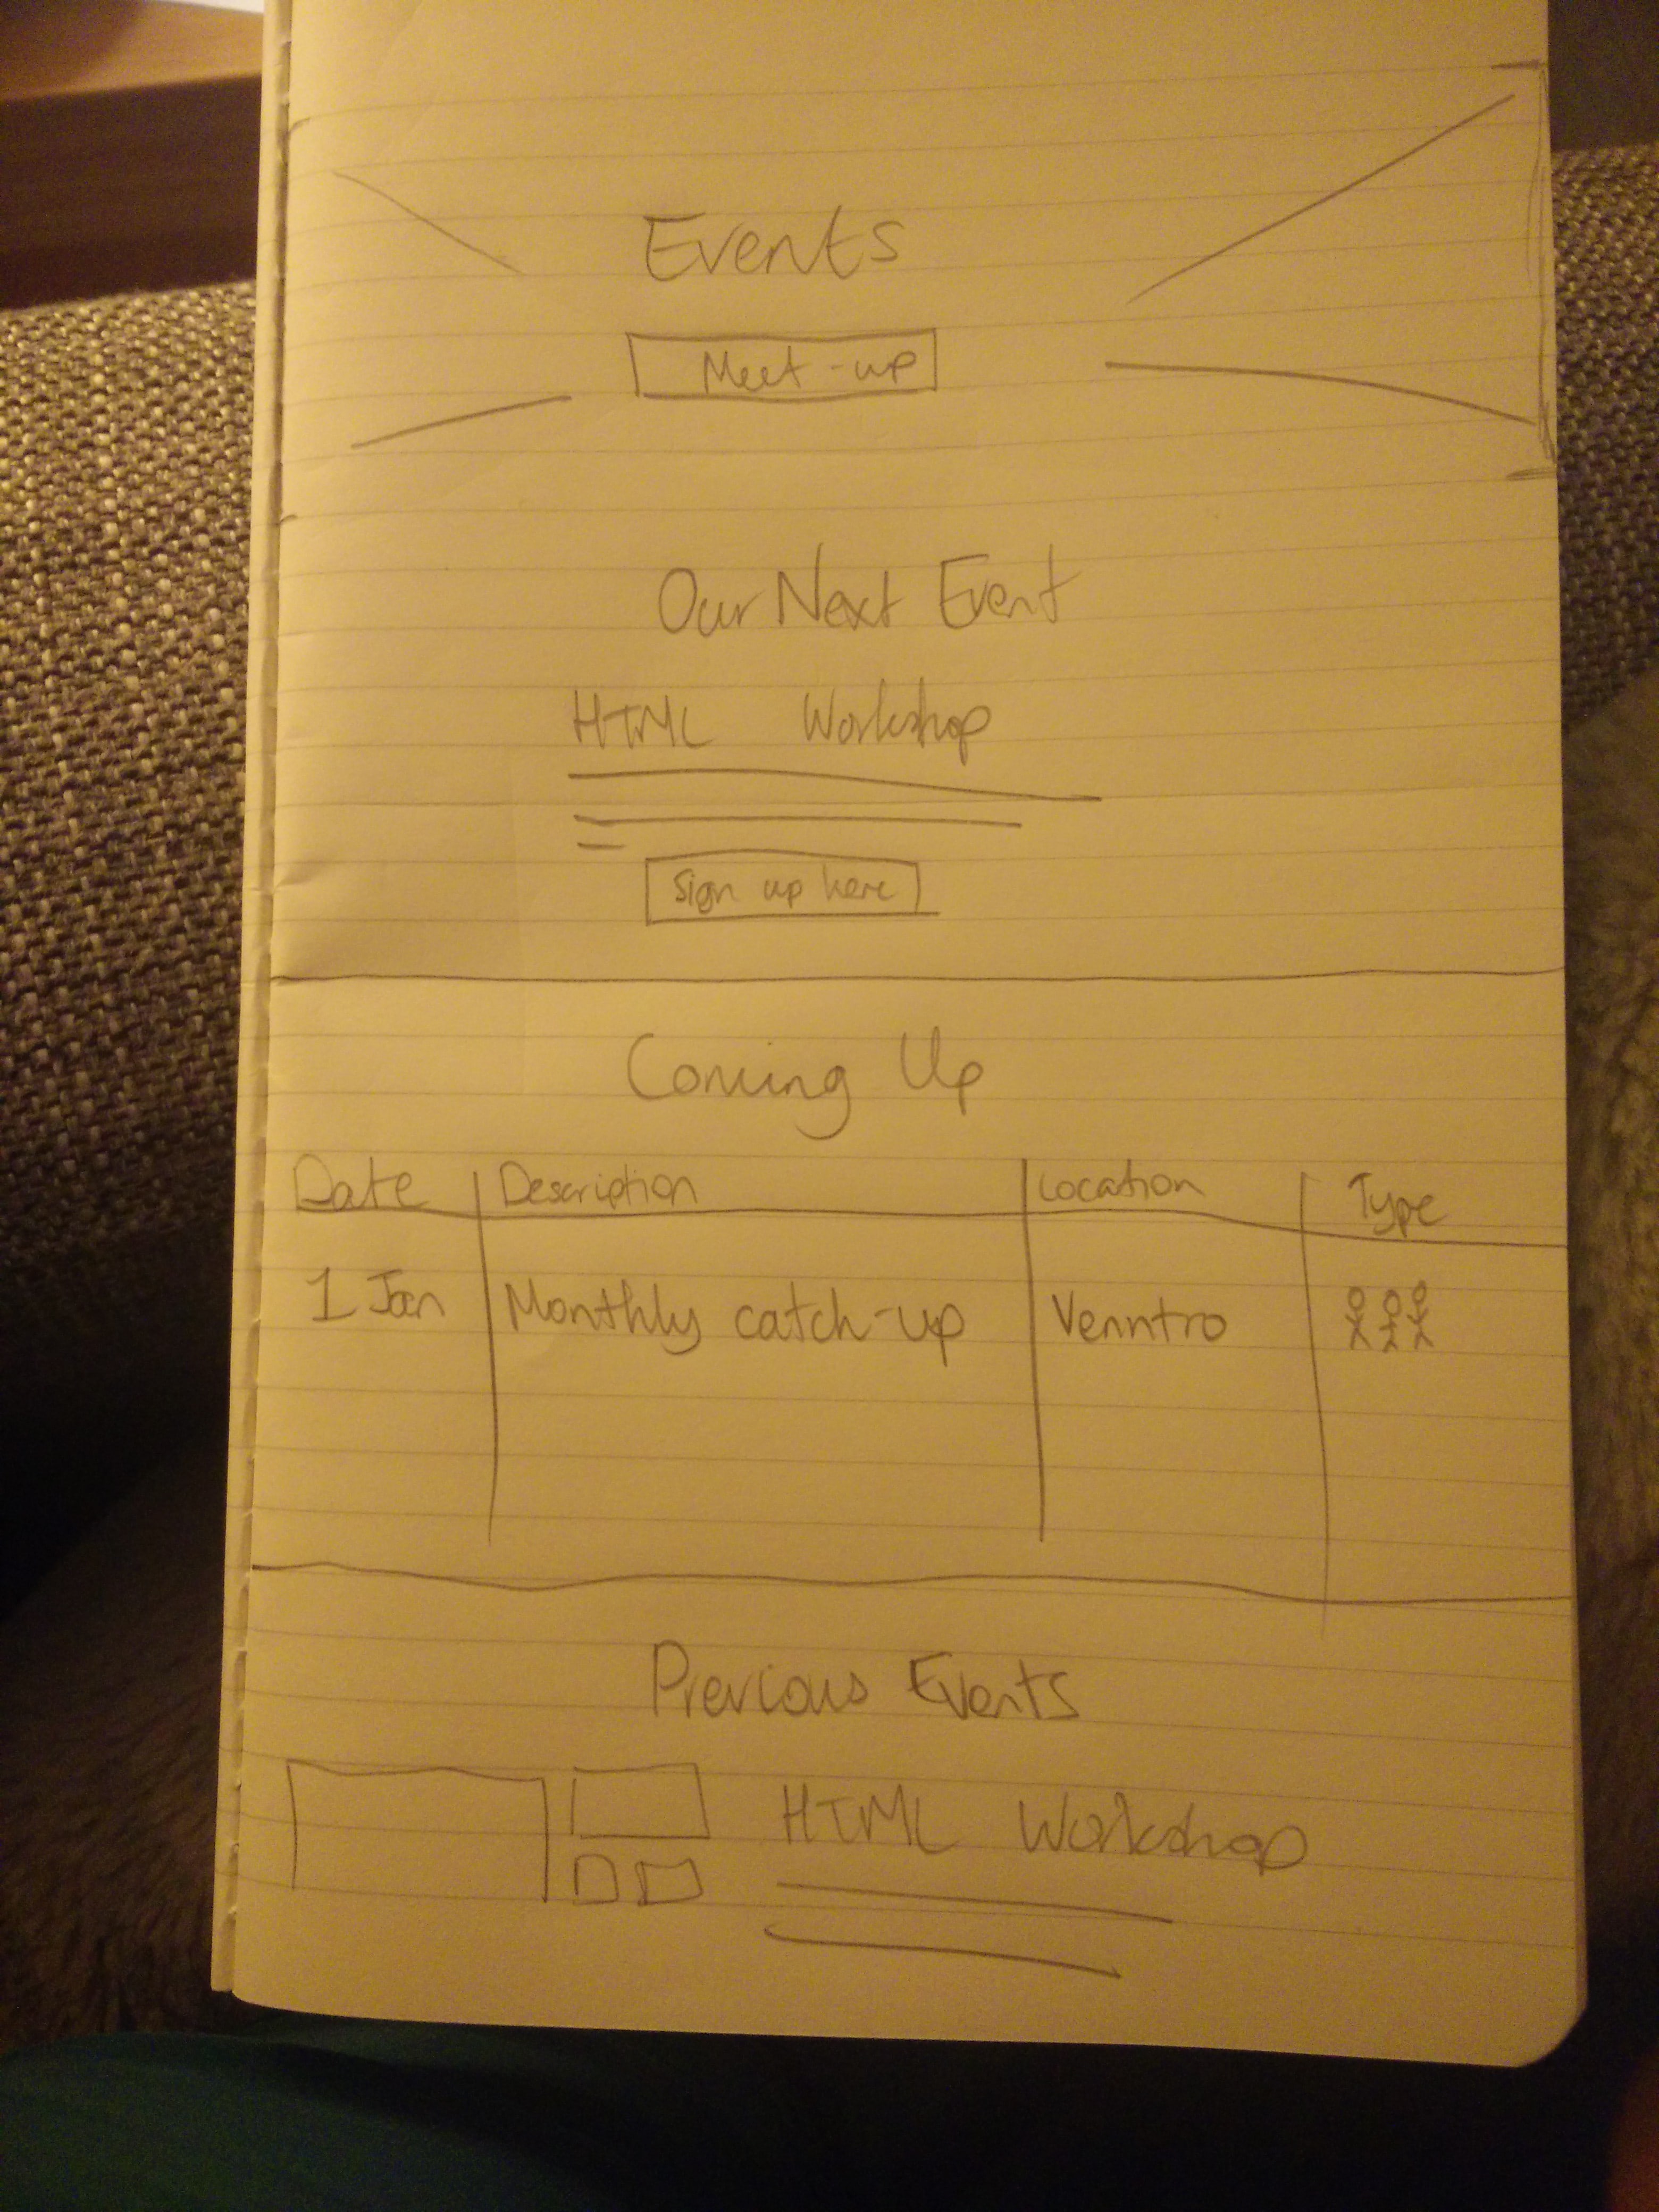 Events
Meet-up
Our Next Event
HTML Workshop
Sign up here
Coming Up
Date Description Location Type
1 Jan Monthly catch-up Venntro
Previous Events
HTML Workshop